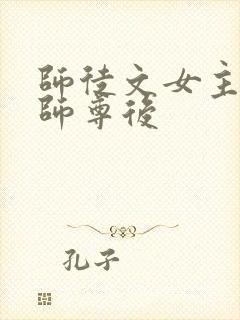 師徒文女主
師尊後
孔子